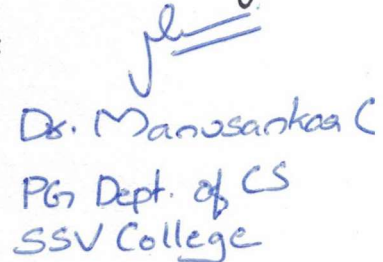 Dr. Manusankar C
PG Dept. of CS
SSV College